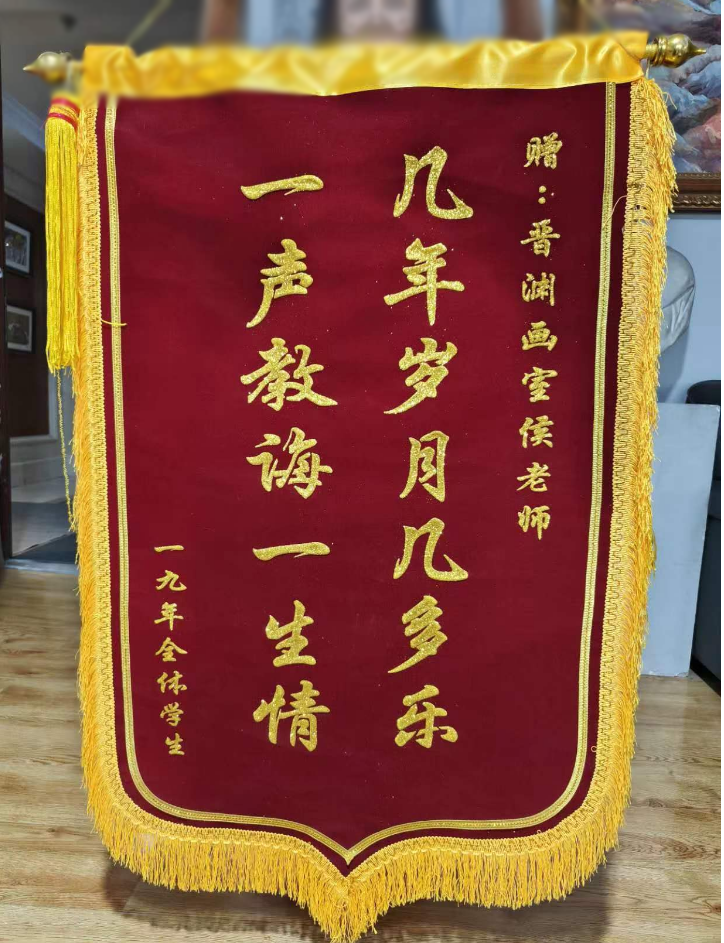 赠：晋渊画室侯老师
几年岁月几多乐
一声教诲一生情
一九年全体学生